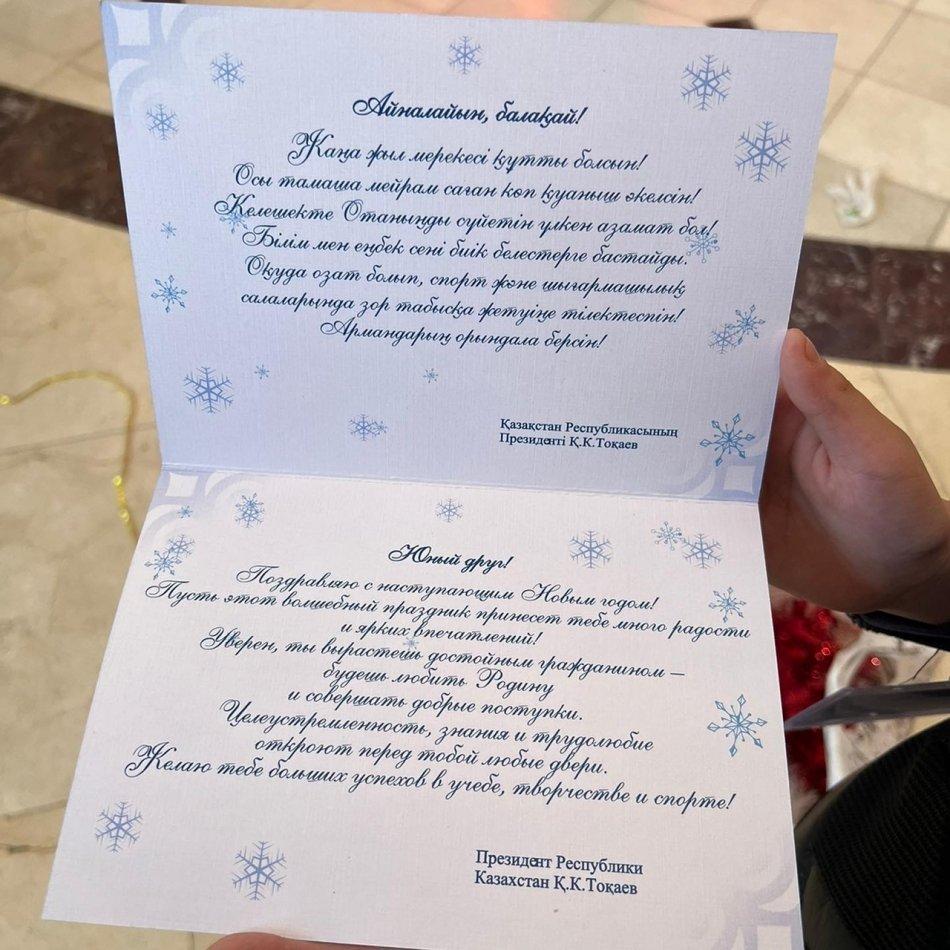 Айналайын, балақай!
Жаңа жыл мерекесі құтты болсын!
Осы тамаша мейрам саған көп қуаныш әкелсін!
Келешекте Отаныңды сүйетін үлкен азамат бол!
Білім мен еңбек сені биік белестерге бастайды.
Оқуда озат болып, спорт және шығармашылық
салаларында зор табысқа жетуіңе тілектеспін!
Армандарың орындала берсін!
Қазақстан Республикасының
Президенті Қ.К.Тоқаев
Юный друг!
Поздравляю с наступающим Новым годом!
Пусть этот волшебный праздник принесет тебе много радости
и ярких впечатлений!
Уверен, ты вырастешь достойным гражданином –
будешь любить Родину
и совершать добрые поступки.
Целеустремленность, знания и трудолюбие
откроют перед тобой любые двери.
Желаю тебе больших успехов в учебе, творчестве и спорте!
Президент Республики
Казахстан Қ.К.Тоқаев